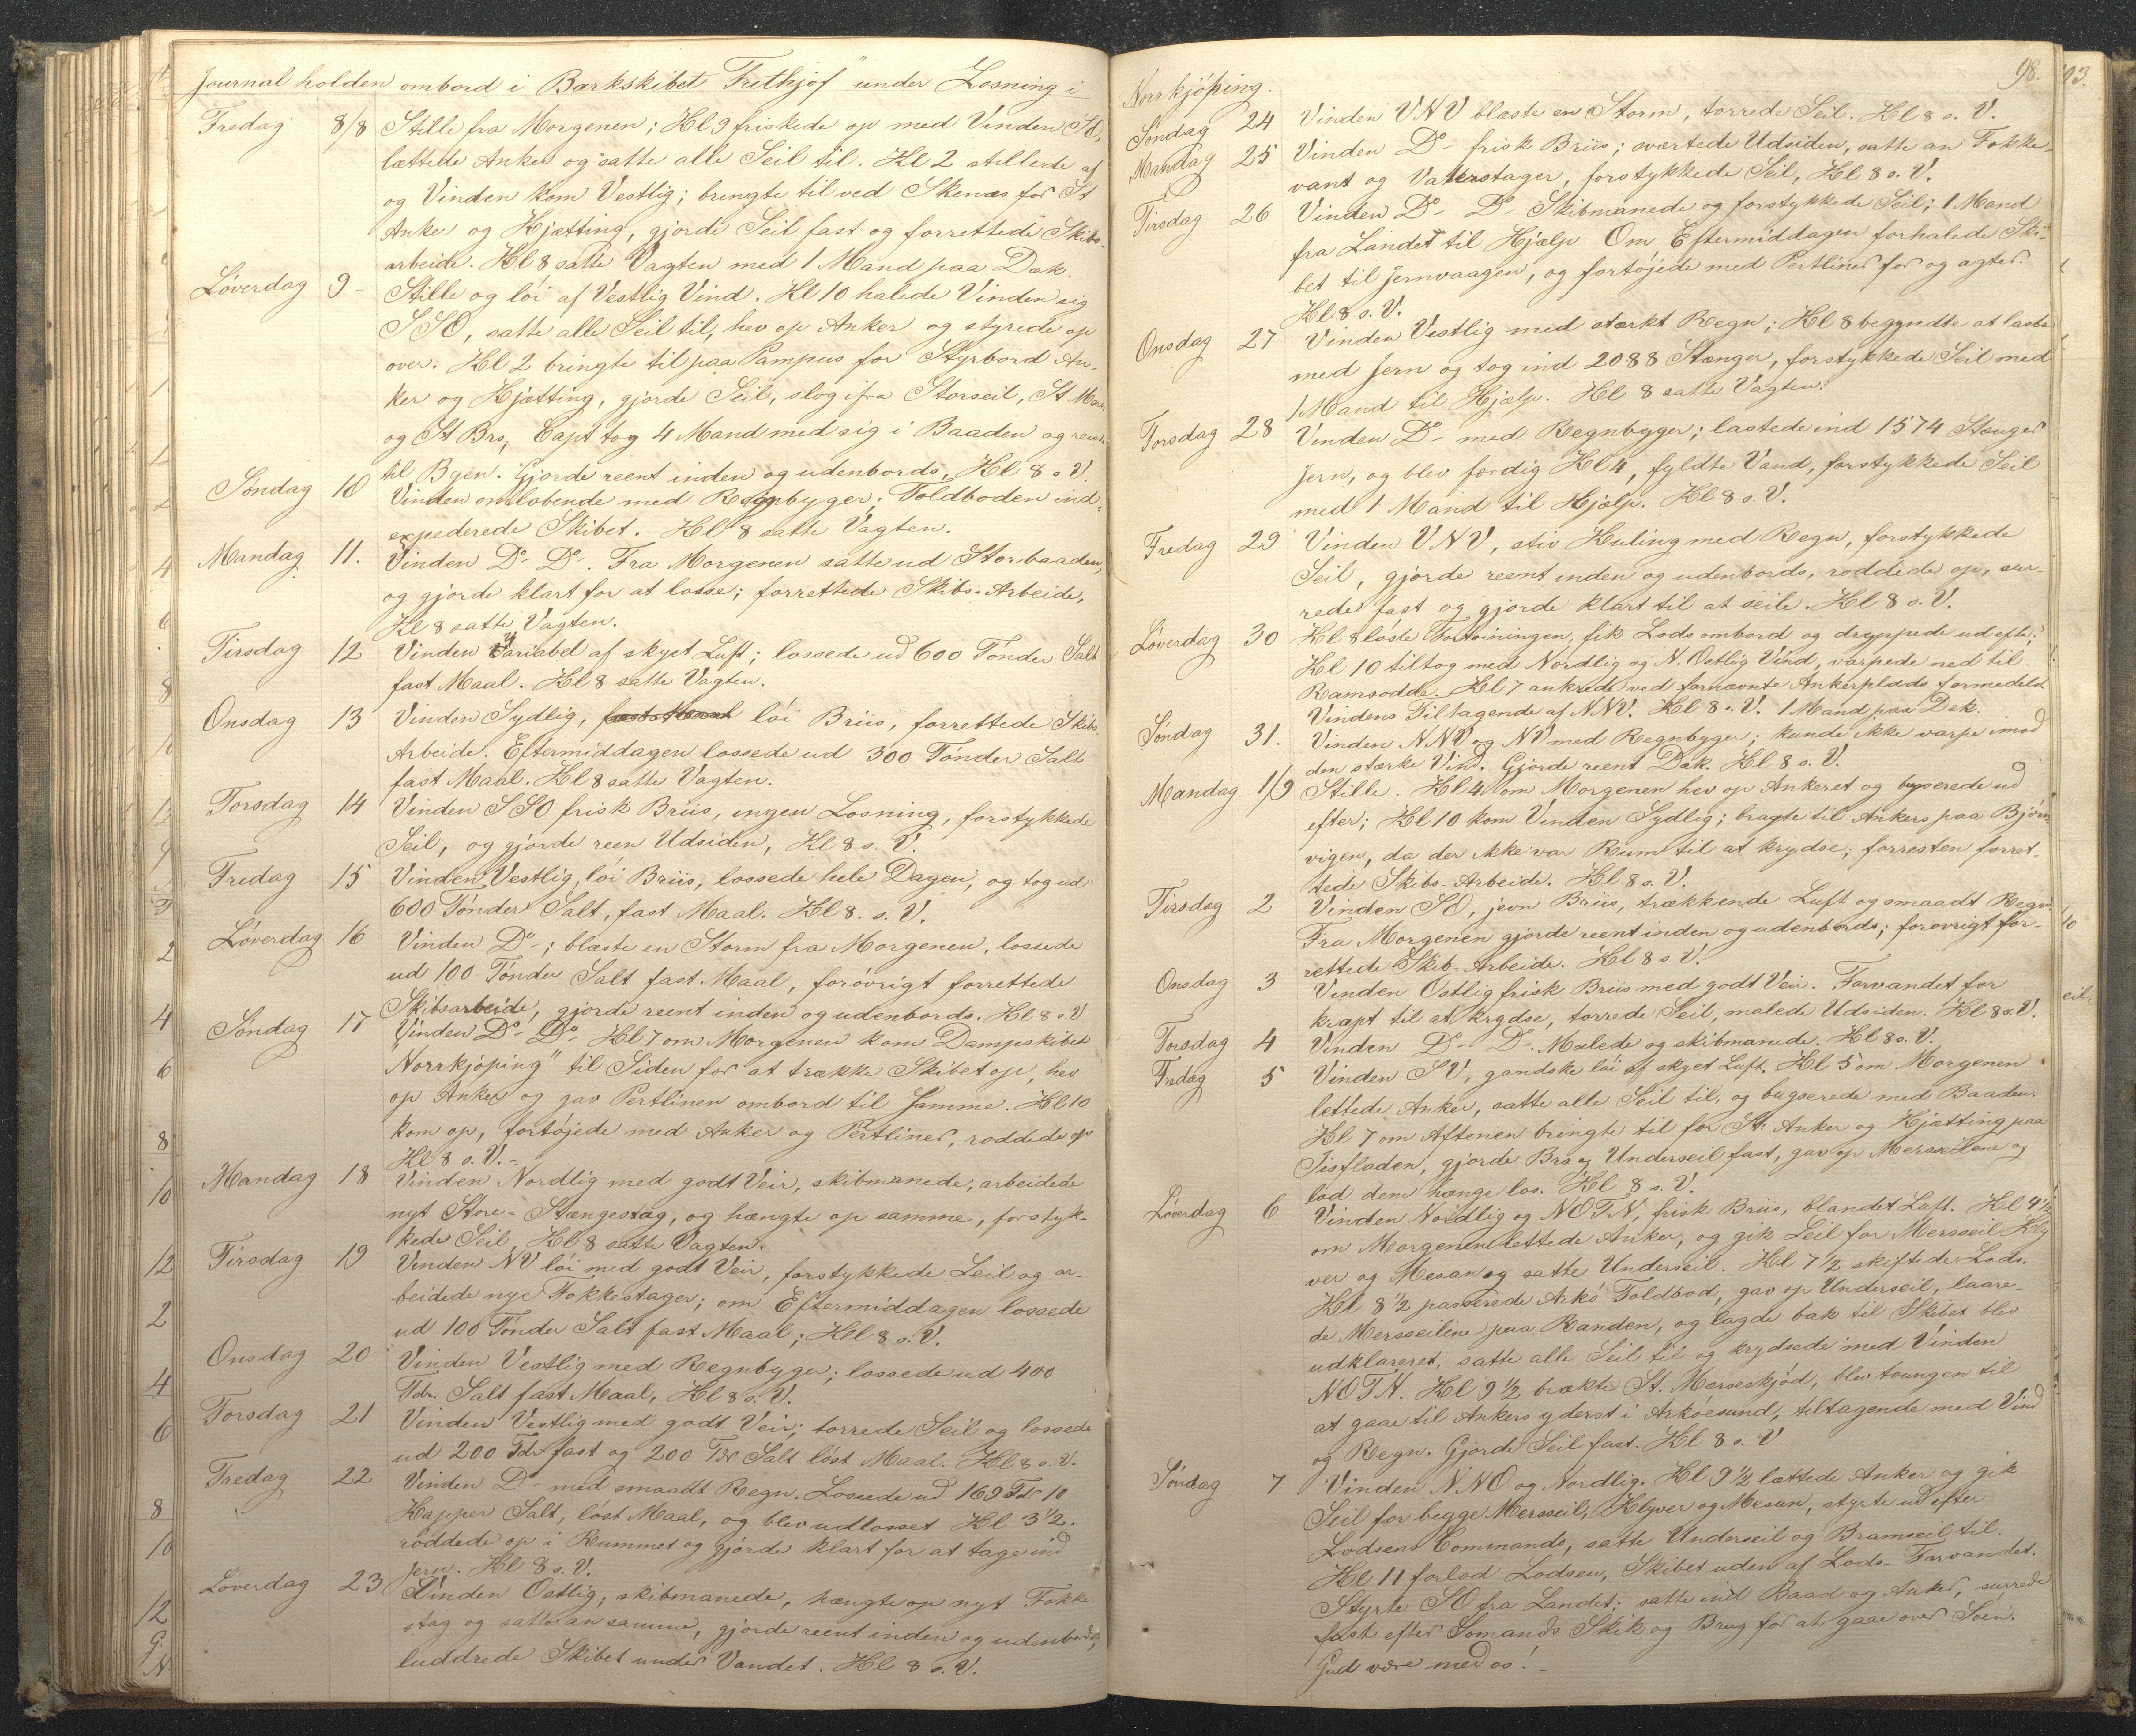 Journal holden ombord i Barkskibet "Frithjof" under Losning i
Fredag 8/8 Stille fra Morgenen; Kl 9 friskede op med Vinden SO,
lættede Anker og satte alle Seil til. Kl 2 stillede af
og Vinden kom Vestlig; bringte til ved Skenæs for St
Anker og Kjætting, gjorde Seil fast og forrettede Skibs-
arbeide. Kl 8 satte Vagten med 1 Mand paa Dæk.
Løverdag 9 - Stille og løi af Vestlig Vind. Kl 10 halede Vinden sig
SSO, satte alle Seil til, hev op Anker og styrede op
over. Kl 2 bringte til paa Pampus for Styrbord An-
ker og Kjætting, gjorde Seil, slog ifra Storseil, St Mers
og St Bro; Capt tog 4 Mand med sig i Baaden og reiste
til Byen. Gjorde reent inden og udenbords, Kl 8 s. V.
Søndag 10 Vinden omløbende med Regnbyger; Toldboden ind-
expederede Skibet. Kl 8 satte Vagten.
Mandag 11. Vinden Do- Do-. Fra Morgenen satte ud Storbaaden,
og gjorde klart for at losse; forrettede Skibs-Arbeide,
Kl 8 satte Vagten.
Tirsdag 12 Vinden Variabel af skyet Luft; lossede ud 600 Tønder Salt
fast Maal. Kl 8 satte Vagten.
Onsdag 13 Vinden Sydlig, fast Maal løi Briis, forrettede Skibs
Arbeide. Eftermiddagen lossede ud 300 Tønder Salt
fast Maal. Kl 8 satte Vagten.
Torsdag 14 Vinden SSO frisk Briis, ingen Losning, forstykkede
Seil, og gjorde reen Udsiden, Kl 8 s. V.
Fredag 15 Vinden Vestlig, løi Briis, lossede hele Dagen, og tog ud
600 Tønder Salt, fast Maal. Kl 8. s. V.
Løverdag 16 Vinden Do-; blæste en Storm fra Morgenen, lossede
ud 100 Tønder Salt fast Maal, forøvrigt forrettede
Skibsarbeide, gjorde reent inden og udenbords. Kl 8 s. V.
Søndag 17 Vinden Do- Do- Kl 7 om Morgenen kom Dampskibet
Norrkjøping" til Siden for at trække Skibet op, hev
op Anker og gav Pertlinen ombord til Samme. Kl 10
kom op, fortøjede med Anker og Pertliner, roddede op
Kl 8 s. V.-
Mandag 18 Vinden Nordlig med godt Veir, skibmanede, arbeidede
nyt Store-Stængestag, og hængte op samme, forstyk-
kede Seil, Kl 8 satte Vagten.
Tirsdag 19 Vinden NV løi med godt Veir, forstykkede Seil og ar-
beidede nye Fokkestager; om Eftermiddagen lossede
ud 100 Tønder Salt fast Maal; Kl 8 s. V.
Onsdag 20 Vinden Vestlig med Regnbyger; lossede ud 400
Tdr. Salt fast Maal, Kl 8 s. V.
Torsdag 21 Vinden Vestlig med godt Veir; tørrede Seil og lossede
ud 200 Tdr fast og 200 Tdr Salt løst Maal. Kl 8 s. V.
Fredag 22 Vinden Do- med smaadt Regn. Lossede ud 169 Tdr 10
Kapper Salt, løst Maal, og blev udlosset Kl 3½.
roddede op i Rummet og gjorde klart for at tage ind
Jern. Kl 8 s. V.
Løverdag 23 Vinden Østlig, skibmanede, hængte op nyt Fokke
stag og satte an samme, gjorde reent inden og udenbords,
luddrede Skibet under Vandet. Kl 8 s. V.
98.
Norrkjøping.
Søndag 24 Vinden VNV blæste en Storm, tørrede Seil. Kl 8 s. V.
Mandag 25 Vinden Do- frisk Briis; sværtede Udsiden, satte an Fokke-
vant og Vaterstager, forstykkede Seil, Kl 8 s. V.
Tirsdag 26 Vinden Do- Do- Skibmanede og forstykkede Seil; 1 Mand
fra Landet til Hjælp Om Eftermiddagen forhalede Ski-
bet til Jernvaagen, og fortøjede med Pertliner for og agter.
Kl 8 s. V.
Onsdag 27 Vinden Vestlig med stærkt Regn; Kl 8 begyndte at laste
med Jern og tog ind 2088 Stænger, forstykkede Seil med
1 Mand til Hjælp. Kl 8 satte Vagten.
Torsdag 28 Vinden Do- med Regnbyger; lastede ind 1574 Stænger
Jern, og blev færdig Kl 4, fyldte Vand, forstykkede Seil
med 1 Mand til Hjælp. Kl 8 s. V.
Fredag 29 Vinden VNV, stiv Kuling med Regn, forstykkede
Seil, gjorde reent inden og udenbords, roddede op, sur-
rede fast og gjorde klart til at seile. Kl 8 s. V.
Løverdag 30 Kl 8 løste Fortøiningen, fik Lods ombord og dreyppede ud efter;
Kl 10 tiltog med Nordlig og N. Østlig Vind, varpede ned til
Ramsodde. Kl 7 ankrede ved fornævnte Ankerplads formedelst
Vindens Tiltagende af NNV. Kl 8 s. V. 1 Mand paa Dæk.
Søndag 31. Vinden NNV og NV med Regnbyger; kunde ikke varpe imod
den stærke Vind. Gjorde reent Dæk. Kl 8 s. V.
Mandag 1/9 Stille. Kl 4 om Morgenen hev op Ankeret og bugserede ud
efter; Kl 10 kom Vinden Sydlig; bragte til Ankers paa Bjørn-
vigen, da der ikke var Rum til at krydse; forresten forret-
tede Skibs-Arbeide. Kl 8 s. V.
Tirsdag 2 Vinden SO, jevn Briis, trækkende Luft og smaadt Regn.
Fra Morgenen gjorde reent inden og udenbords; forøvrigt for-
rettede Skib-Arbeide. Kl 8 s. V.
Onsdag 3 Vinden Østlig frisk Briis med godt Veir. Farvandet for
knapt til at krydse, tørrede Seil, malede Udsiden. Kl 8 s. V.
Torsdag 4 Vinden Do- Do-. Malede og skibmanede. Kl 8 s. V.
Fredag 5 Vinden SV, gandske løi af skyet Luft. Kl 5 om Morgenen
lettede Anker, satte alle Seil til, og bugserede med Baaden.
Kl 7 om Aftenen bringte til for St. Anker og Kjætting paa
Tisfladen, gjorde Bro og Underseil fast, gav op Mersseilene og
lod dem hænge los. Kl 8 s. V.
Løverdag 6 Vinden Nordlig og NOTN, frisk Briis, blandet Luft. Kl 4½
om Morgenen lettede Anker, og gik Seil for Mersseil Kly
ver og Mesan og satte Underseil. Kl 7½ skiftede Lods.
Kl 8½ passerede Arkø Toldbod, gav op Underseil, laare-
de Mersseilene paa Randen, og lagde bak til Skibet blev
udklareret, satte alle Seil til og krydsede med Vinden
NOTN. Kl 9½ brækte St. Mersseskjød, blev tvungen til
at gaae til Ankers yderst i Arkøesund, tiltagende med Vind
og Regn. Gjorde Seil fast. Kl 8 s. V
Søndag 7 Vinden NNO og Nordlig. Kl 9½ lættede Anker og gik
Seil for begge Mersseil, Klyver og Mesan, styrte ud efter
Lodsens Commando, satte Underseil og Bramseil til.
Kl 11 forlod Lodsen, Skibet uden af Lods-Farvandet.
Styrte SO fra Landet; satte ind Baad og Anker, surrede
fast efter Sømands Skik og Brug for at gaae over Søen.
Gud være med os!-